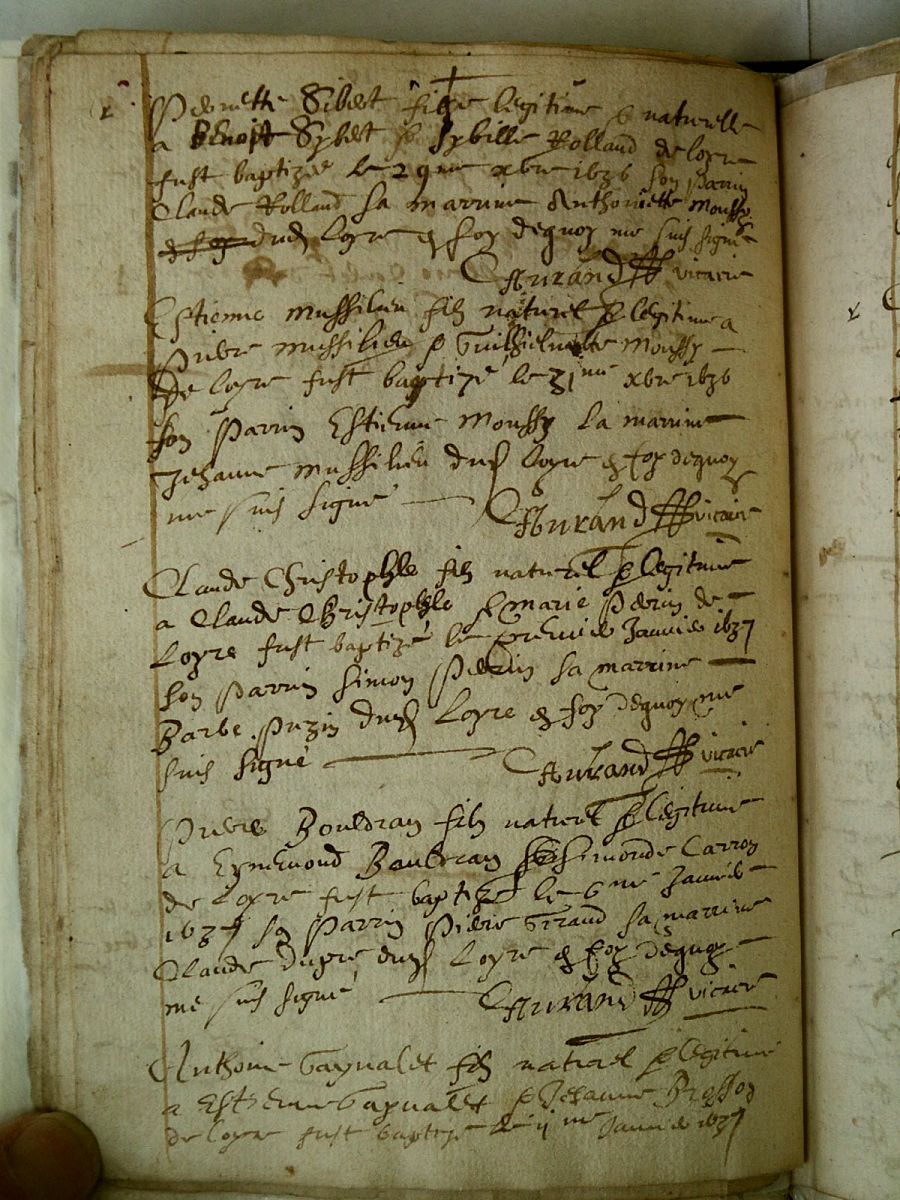 Pernette Sibert fille legitime & naturelle
a Benoist Sybert & Sybille Rolland de loyre
fust baptizée le 29me xbre 1636 son parrin
Claude Rolland sa marrine Anthoinette Moussy
dud loyre en foy dequoy me suis signé
Aurand vicaire
Estienne mussilieu filz naturel & legitime a
pierre mussilieu & Guilhielmette Moussy
De loyre fust baptizé le 31me xbre 1636
son parrin Estienne Moussy La marrine
Jehanne mussilieu dud loyre en foy dequoy
me suis signé
Aurand vicaire
Claude Christophle filz naturel & legitime
a Claude Christophle & marie perrin de
Loyre fust baptizé le premier Janvier 1637
son parrin simon perrin sa marrine
Barbe puzin dud Loyre en foy dequoy me
suis signé
Aurand vicaire
pierre Bouldran filz naturel & legitime
a Eymemond Bouldran & simonde Carron
de Loyre fust baptizé le 6me Janvier
1637 son parrin pierre Giraud sa marrine
Claude dupre dud Loyre en foy dequoy
me suis signé
Aurand vicaire
Anthoine Gaynalet filz naturel & legitime
a Estienne Gaynalet & Jehanne
de loyre fust baptizé le 11me Janvier 1637